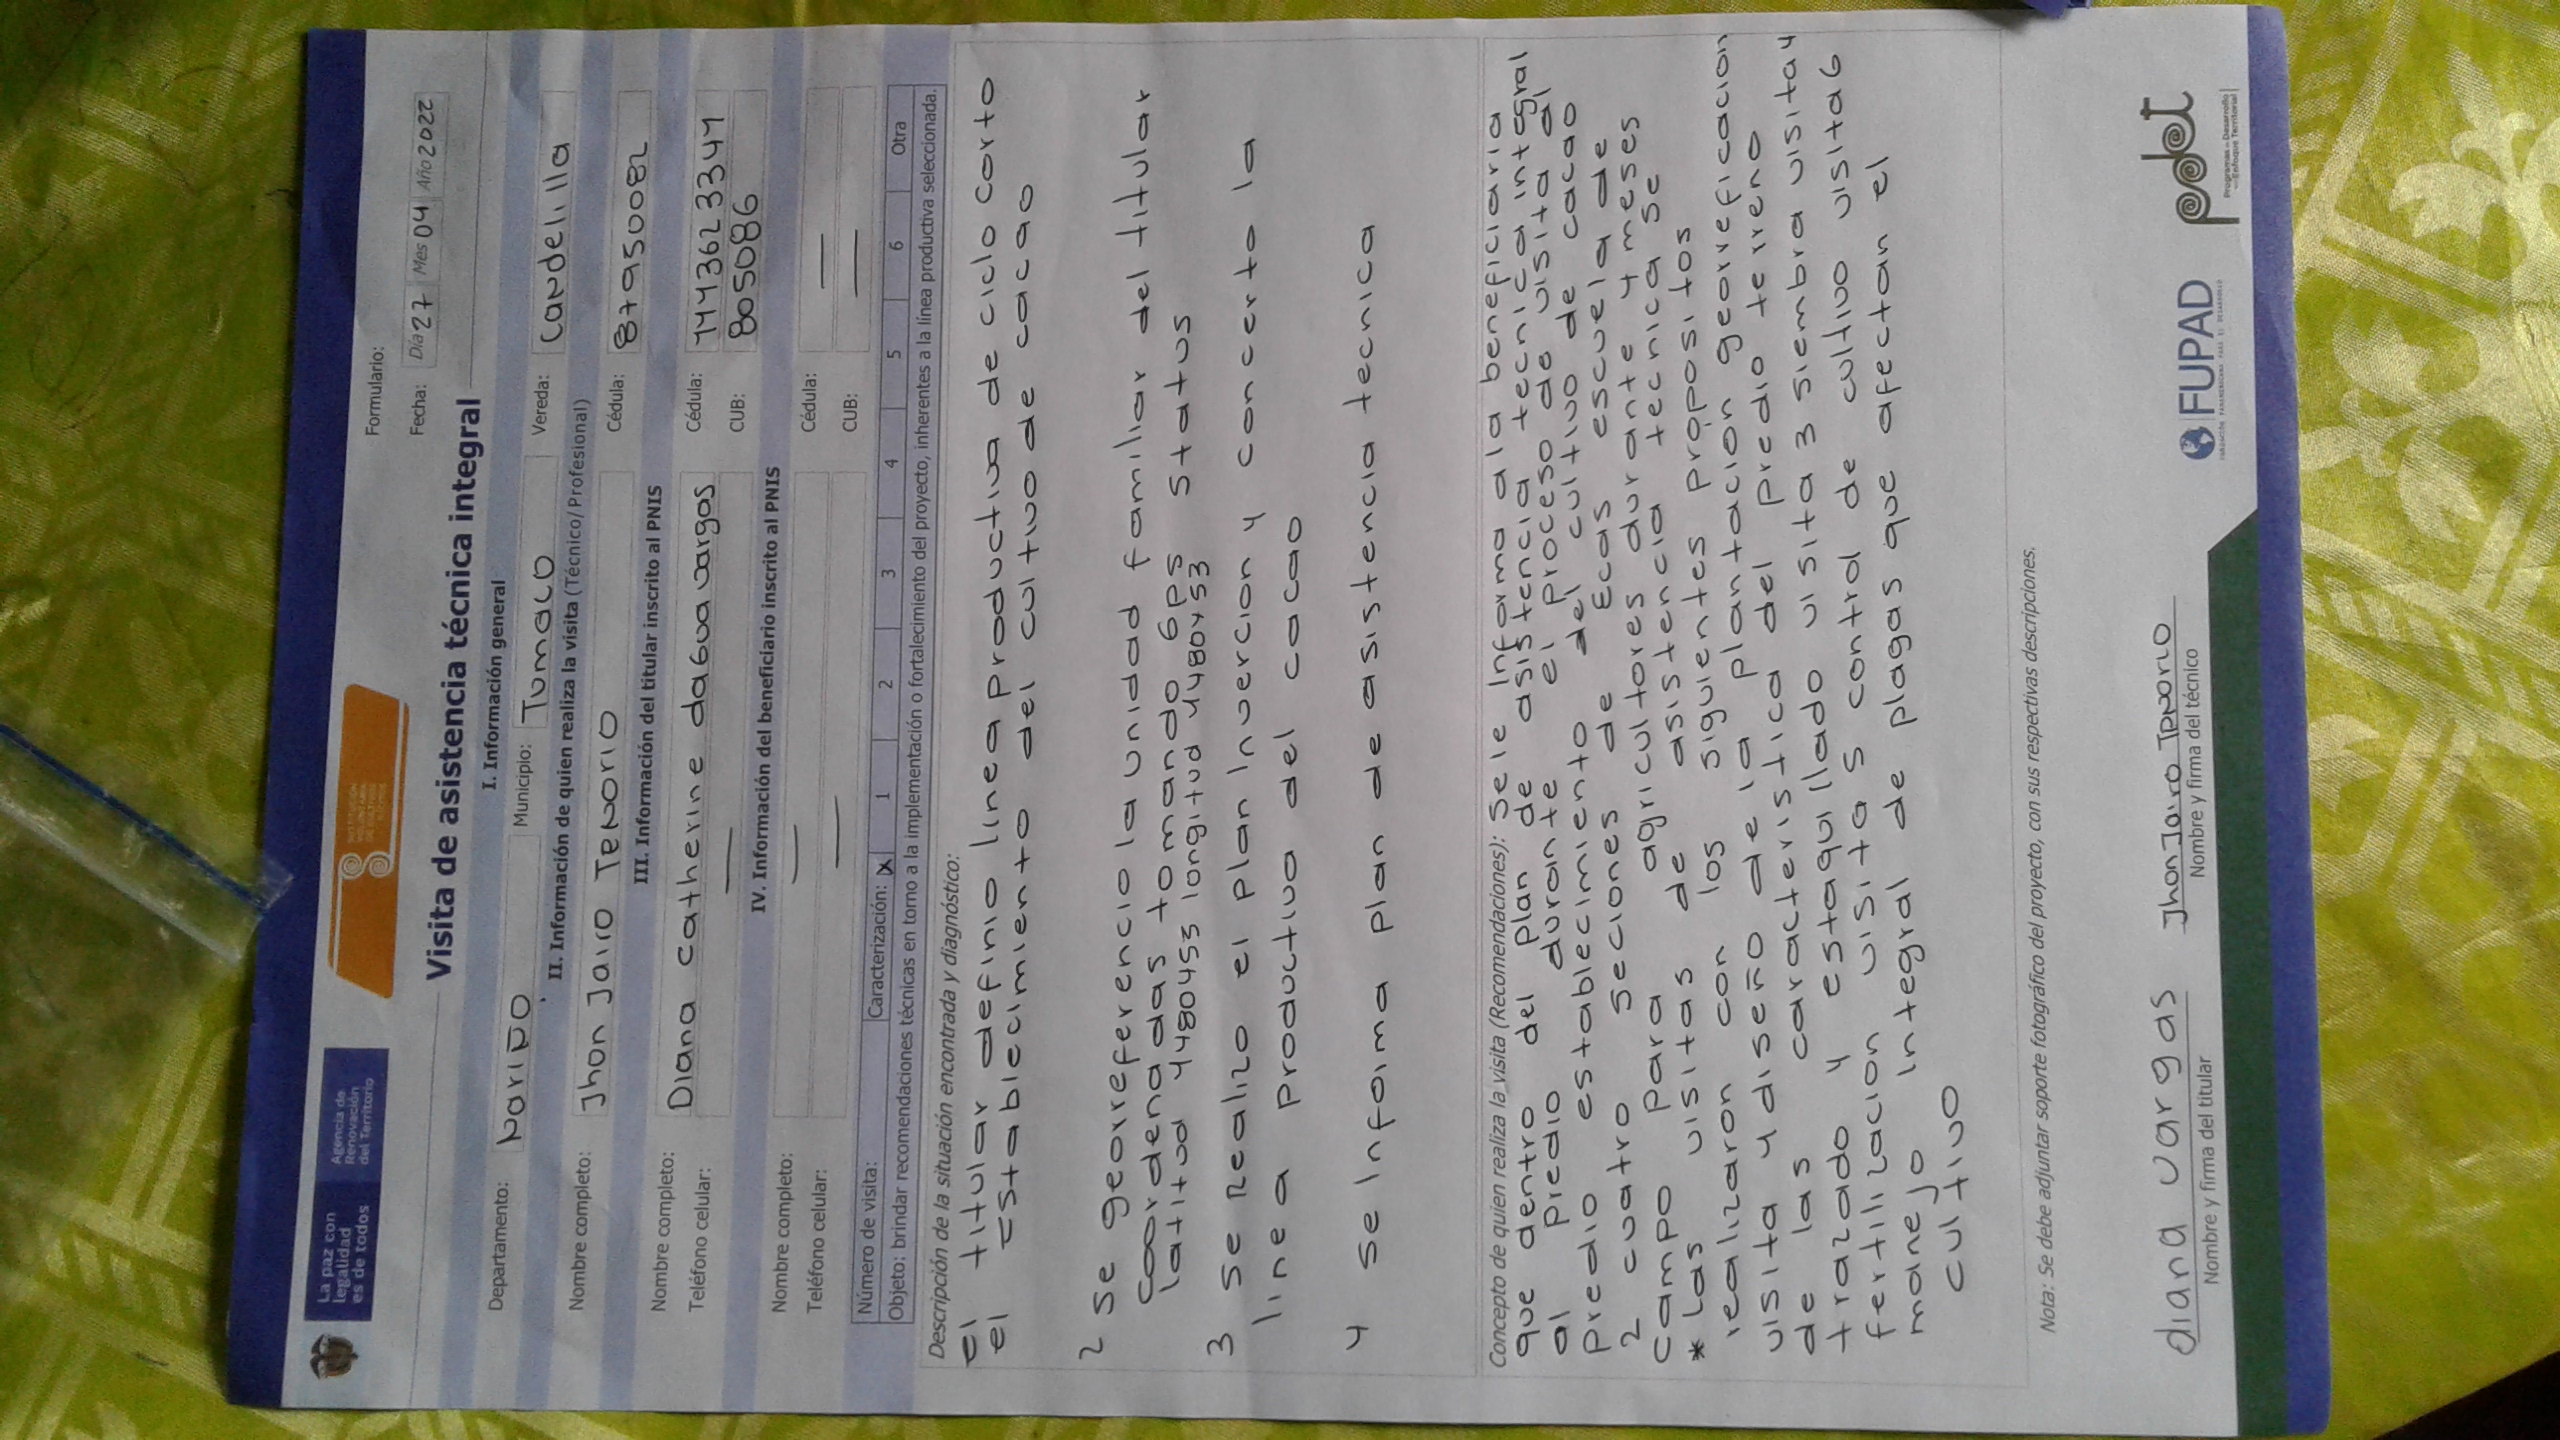 La paz con
legalidad
es de todos
Agencia de
Renovación
del Territorio
SUSTITUCIÓN
VOLUNTARIA
DE CULTIVOS
ILÍCITOS
Formulario:
Fecha: Día 27 Mes 04 Año 2022
Visita de asistencia técnica integral
I. Información general
Departamento: NariÑO Municipio: Tumaco Vereda: Candelilla
II. Información de quien realiza la visita (Técnico/Profesional)
Nombre completo: Jhon Jairo TENORIO Cédula: 87950082
III. Información del titular inscrito al PNIS
Nombre completo: Diana catherine dagua vargas Cédula: 1443623347
Teléfono celular: — CUB: 805086
IV. Información del beneficiario inscrito al PNIS
Nombre completo: — Cédula: —
Teléfono celular: — CUB: —
Número de visita: Caracterización: X 1 2 3 4 5 6 Otra
Objeto: brindar recomendaciones técnicas en torno a la implementación o fortalecimiento del proyecto, inherentes a la línea productiva seleccionada.
Descripción de la situación encontrada y diagnóstico:
el titular definio linea productiva de ciclo corto
el establecimiento del cultivo de cacao
2 se georreferencio la unidad familiar del titular
coordenadas tomando 6ps status
latitud 4480453 longitud 4480453
3 se Realizo el plan Invercion y concerto la
linea productiva del cacao
4 se Informa plan de asistencia tecnica
Concepto de quien realiza la visita (Recomendaciones): Se le Informa ala beneficiaria
que dentro del plan de asistencia tecnica integral
al predio durante el proceso de visita al
predio establecimiento del cultivo de cacao
2 cuatro seciones de Ecas escuela de
campo para agricultores durante 4 meses
* Las visitas de asistencia tecnica se
realizaron con los siguientes propositos
visita y diseño de la plantacion georreficacion
de las caracteristica del predio terreno
trazado y estaquillado visita 3 siembra visita 4
fertilizacion visita 5 control de cultivo visita 6
manejo integral de plagas que afectan el
cultivo
Nota: Se debe adjuntar soporte fotográfico del proyecto, con sus respectivas descripciones.
diana vargas
Nombre y firma del titular
Jhon Jairo TENORIO
Nombre y firma del técnico
FUPAD
FUNDACIÓN PANAMERICANA PARA EL DESARROLLO
pdet
Programas de Desarrollo
con Enfoque Territorial